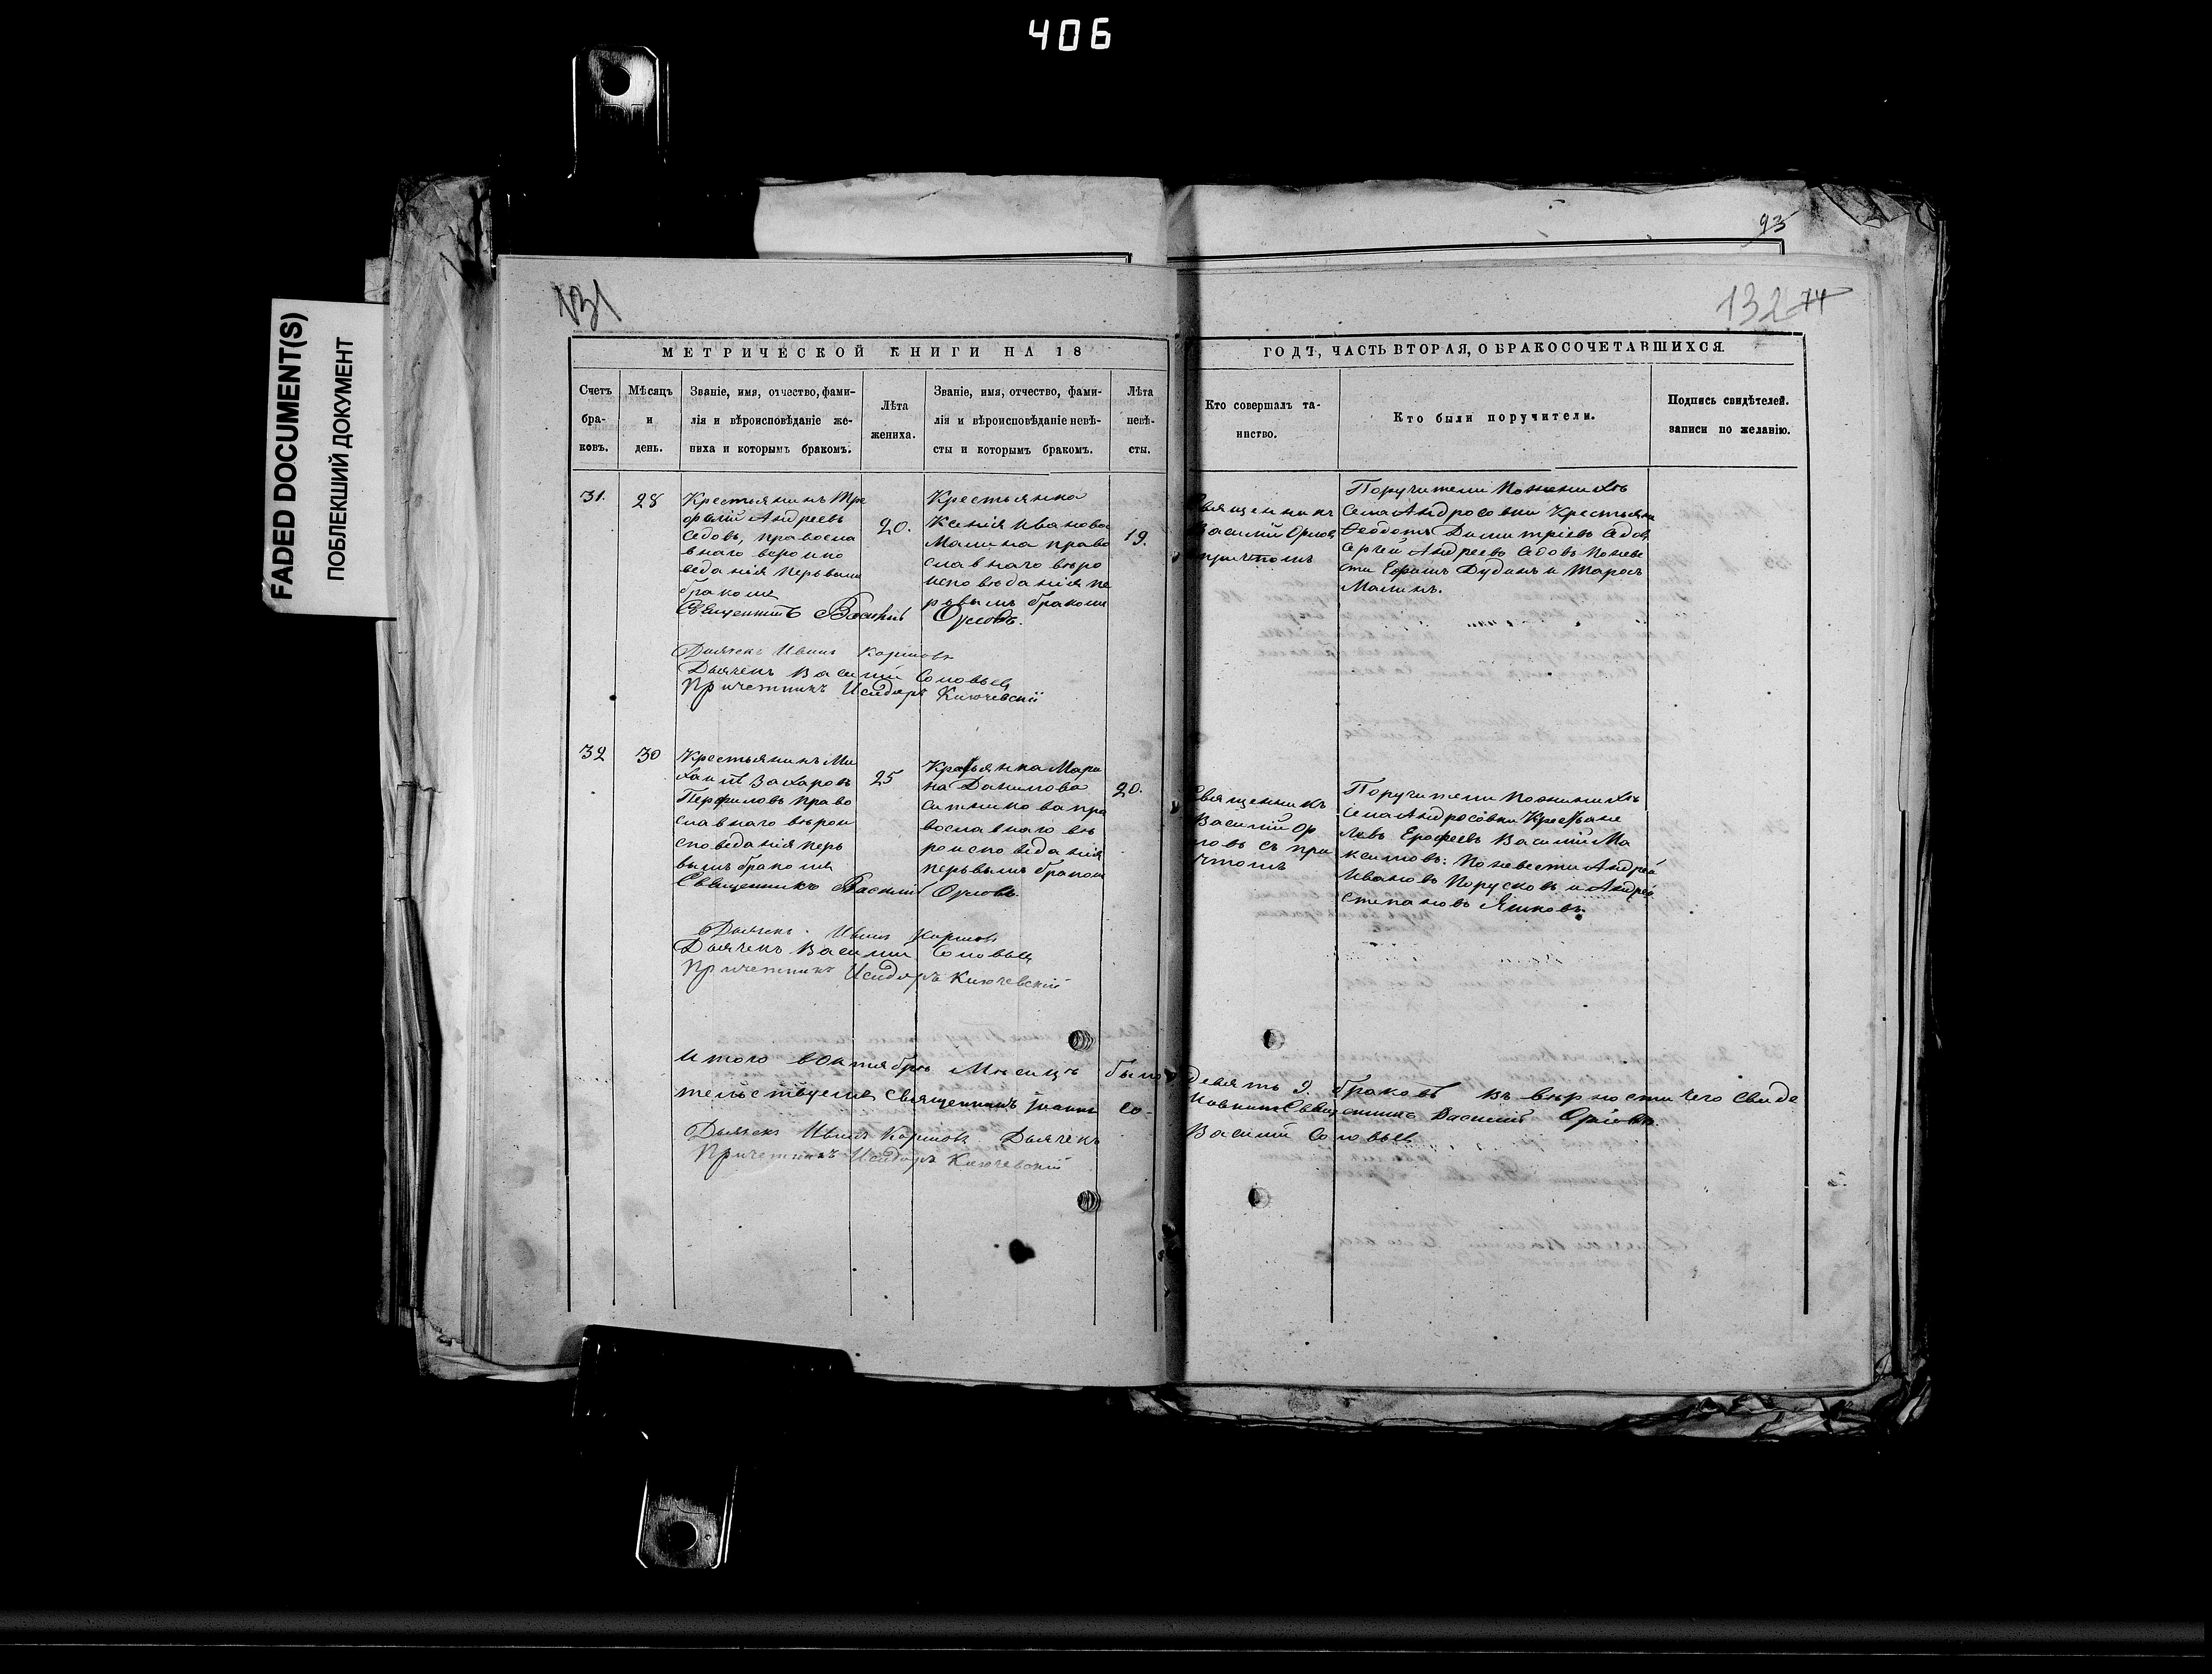 406
FADED DOCUMENT(S)
ПОБЛЕКШИЙ ДОКУМЕНТ
93
131
132 74
МЕТРИЧЕСКОЙ КНИГИ НА 18
ГОДЪ, ЧАСТЬ ВТОРАЯ, О БРАКОСОЧЕТАВШИХСЯ.
Счетъ бра-ковъ.
Мѣсяцъ и день.
Званіе, имя, отчество, фами-
лія и вѣроисповѣданіе же-
ниха и которымъ бракомъ.
Лѣта жениха.
Званіе, имя, отчество, фами-
лія и вѣроисповѣданіе невѣ-
сты и которымъ бракомъ.
Лѣта невѣ-сты.
Кто совершалъ та-
инство.
Кто были поручители.
Подпись свидѣтелей.
записи по желанію.
31.
28
Крестьянинъ Тре
фелій Андреевъ
Седовъ, правосла
внаго вероиспо
веданія первымъ
бракомъ
20.
Крестьянка
Ксенія Иванова
Малина право
славнаго веро
исповѣданія пе
рвымъ бракомъ
19.
Священникъ
Василій Орловъ
причтомъ
Поручители по женихѣ
села Андросовки Крестьяне
Ѳеодотъ Димитріевъ Седовъ
Сергей Андреевъ Седовъ по неве
сти Ефимъ Дудинъ и Тарасъ
Малинъ.
Священникъ Василій Орловъ.
Дьячекъ Иванъ Каримовъ
Дьячекъ Василий Соловьев
Причетникъ Исидоръ Ключевскій
32
30
Крестьянинъ Ми
хаилъ Захаровъ
Перфиловъ право
славнаго верои
споведанія пер
вымъ бракомъ
25
Кресьянка Мари
на Данилова
Ситникова пра
вославнаго вѣ
роисповеданія
первымъ бракомъ
20.
Священникъ
Василій Ор
ловъ съ при
чтомъ
Поручители по женихѣ
села Андросовки Крестьяне
Левъ Ерофеевъ Василій Ма
ксимовъ: По невести Андрей
Ивановъ Порусковъ и Андрей
Степановъ Яшковъ.
Священникъ Василій Орловъ.
Дьячекъ Иванъ Каримовъ
Дьячекъ Василий Соловьев
Причетникъ Исидоръ Ключевскій
Итого в Октябре Месяцѣ было девять 9. браковъ въ верности чего свиде
тельствуемъ Священникъ Іоаннъ Священникъ Василий Орловъ
Дьячекъ Иванъ Каримовъ Дьячекъ Василий Соловьев
Причетникъ Исидоръ Ключевскій